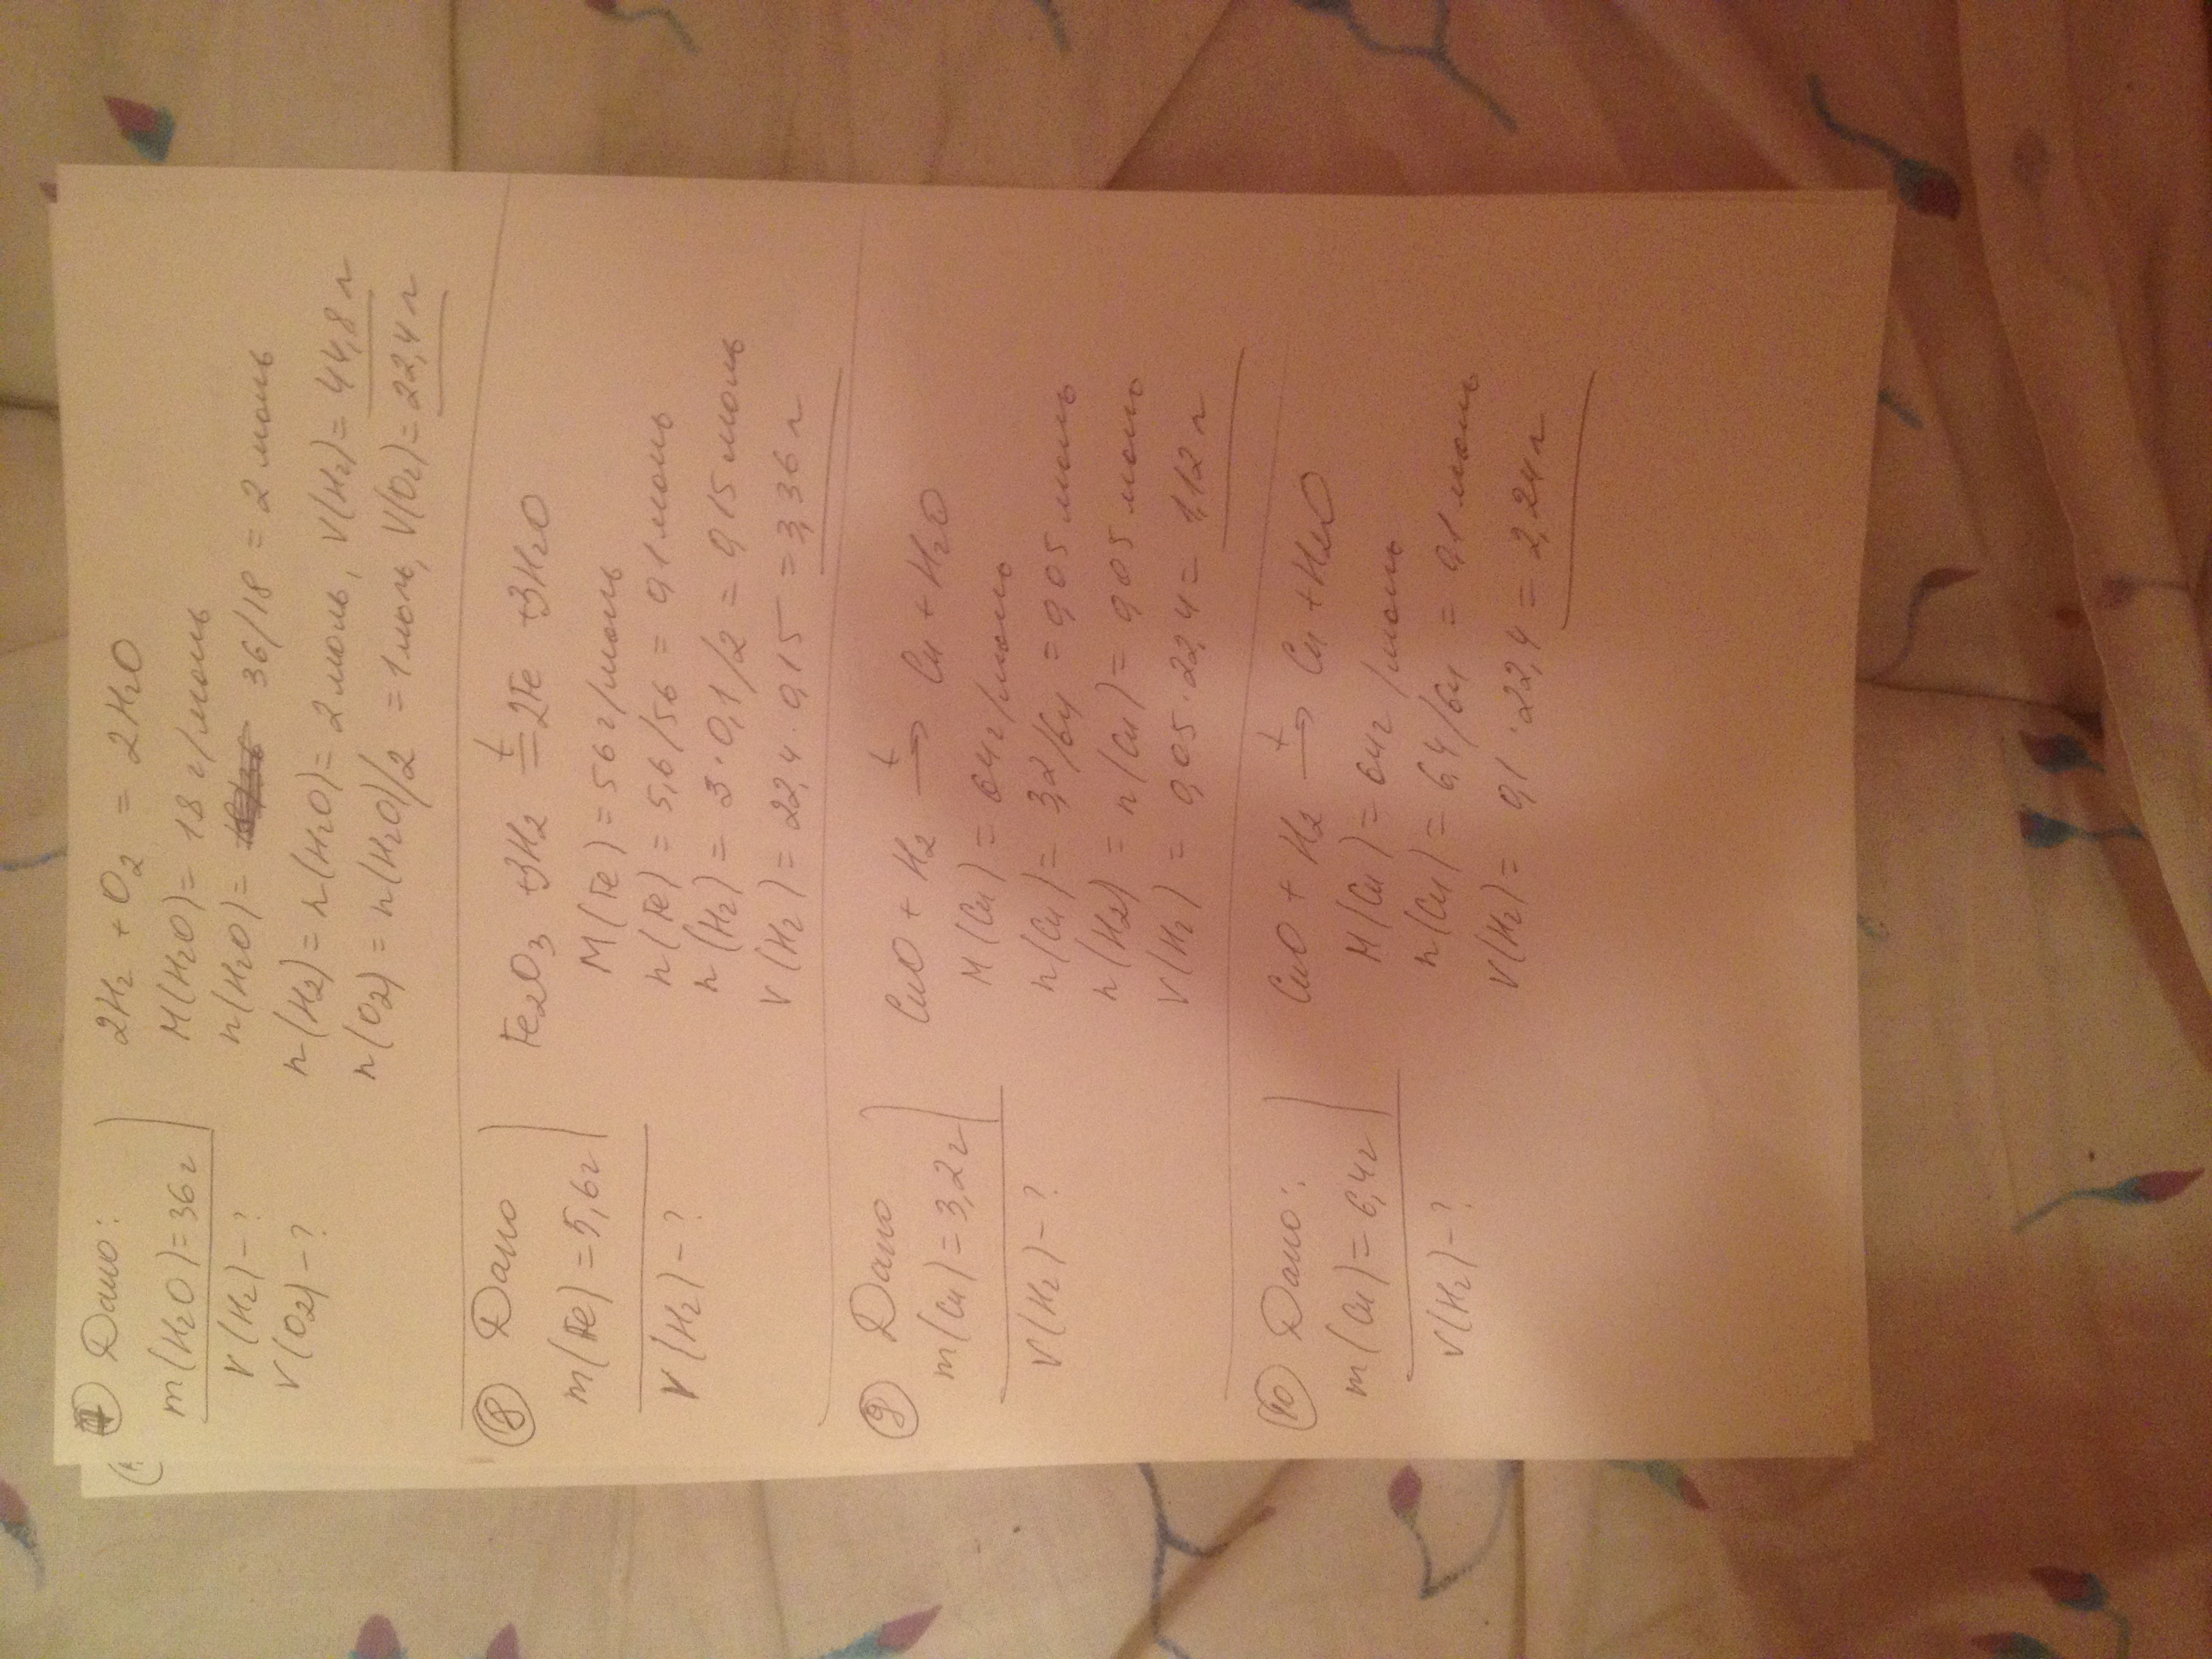 Дано:
m(H2O)=36г
V(H2)-?
V(O2)-?
2H2 + O2 = 2H2O
M(H2O)= 18 г/моль
n(H2O)= 36/18 = 2 моль
n(H2)= n(H2O)= 2 моль, V(H2)= 44,8 л
n(O2)= n(H2O)/2 = 1 моль, V(O2)= 22,4 л
8 Дано
m(Fe)=5,6г
V(H2)-?
Fe2O3 +3H2 t= 2Fe +3H2O
M(Fe)=56 г/моль
n(Fe)=5,6/56 = 0,1 моль
n(H2)= 3·0,1/2 = 0,15 моль
V(H2)= 22,4·0,15 = 3,36 л
9 Дано
m(Cu)=3,2г
V(H2)-?
CuO + H2 t→ Cu + H2O
M(Cu)= 64г/моль
n(Cu)= 3,2/64 = 0,05 моль
n(H2)= n(Cu)= 0,05 моль
V(H2)= 0,05·22,4= 1,12 л
10 Дано:
m(Cu)=6,4г
V(H2)-?
CuO + H2 t→ Cu +H2O
M(Cu)= 64г/моль
n(Cu)= 6,4/64 = 0,1 моль
V(H2)= 0,1·22,4= 2,24 л